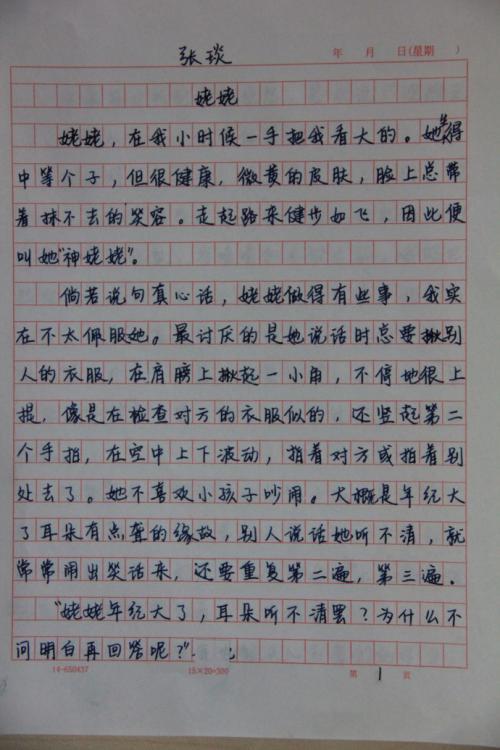 张琰
年 月 日(星期 )
姥姥
姥姥，在我小时候一手把我看大的。她长得
中等个子，但很健康，微黄的皮肤，脸上总带
着抹不去的笑容。走起路来健步如飞，因此便
叫她“神姥姥”。
倘若说句真心话，姥姥做得有些事，我实
在不太佩服她。最讨厌的是她说话时总要揪别
人的衣服，在肩膀上揪起一小角，不停地很上
提，像是在检查对方的衣服似的，还竖起第二
个手指，在空中上下波动，指着对方或指着别
处去了。她不喜欢小孩子吵闹。大概是年纪大
了耳朵有点聋的缘故，别人说话她听不清，就
常常闹出笑话来，还要重复第二遍，第三遍．
“姥姥年纪大了，耳朵听不清罢？为什么不
问明白再回答呢？”
14-650437 15×20=300 第 1 页